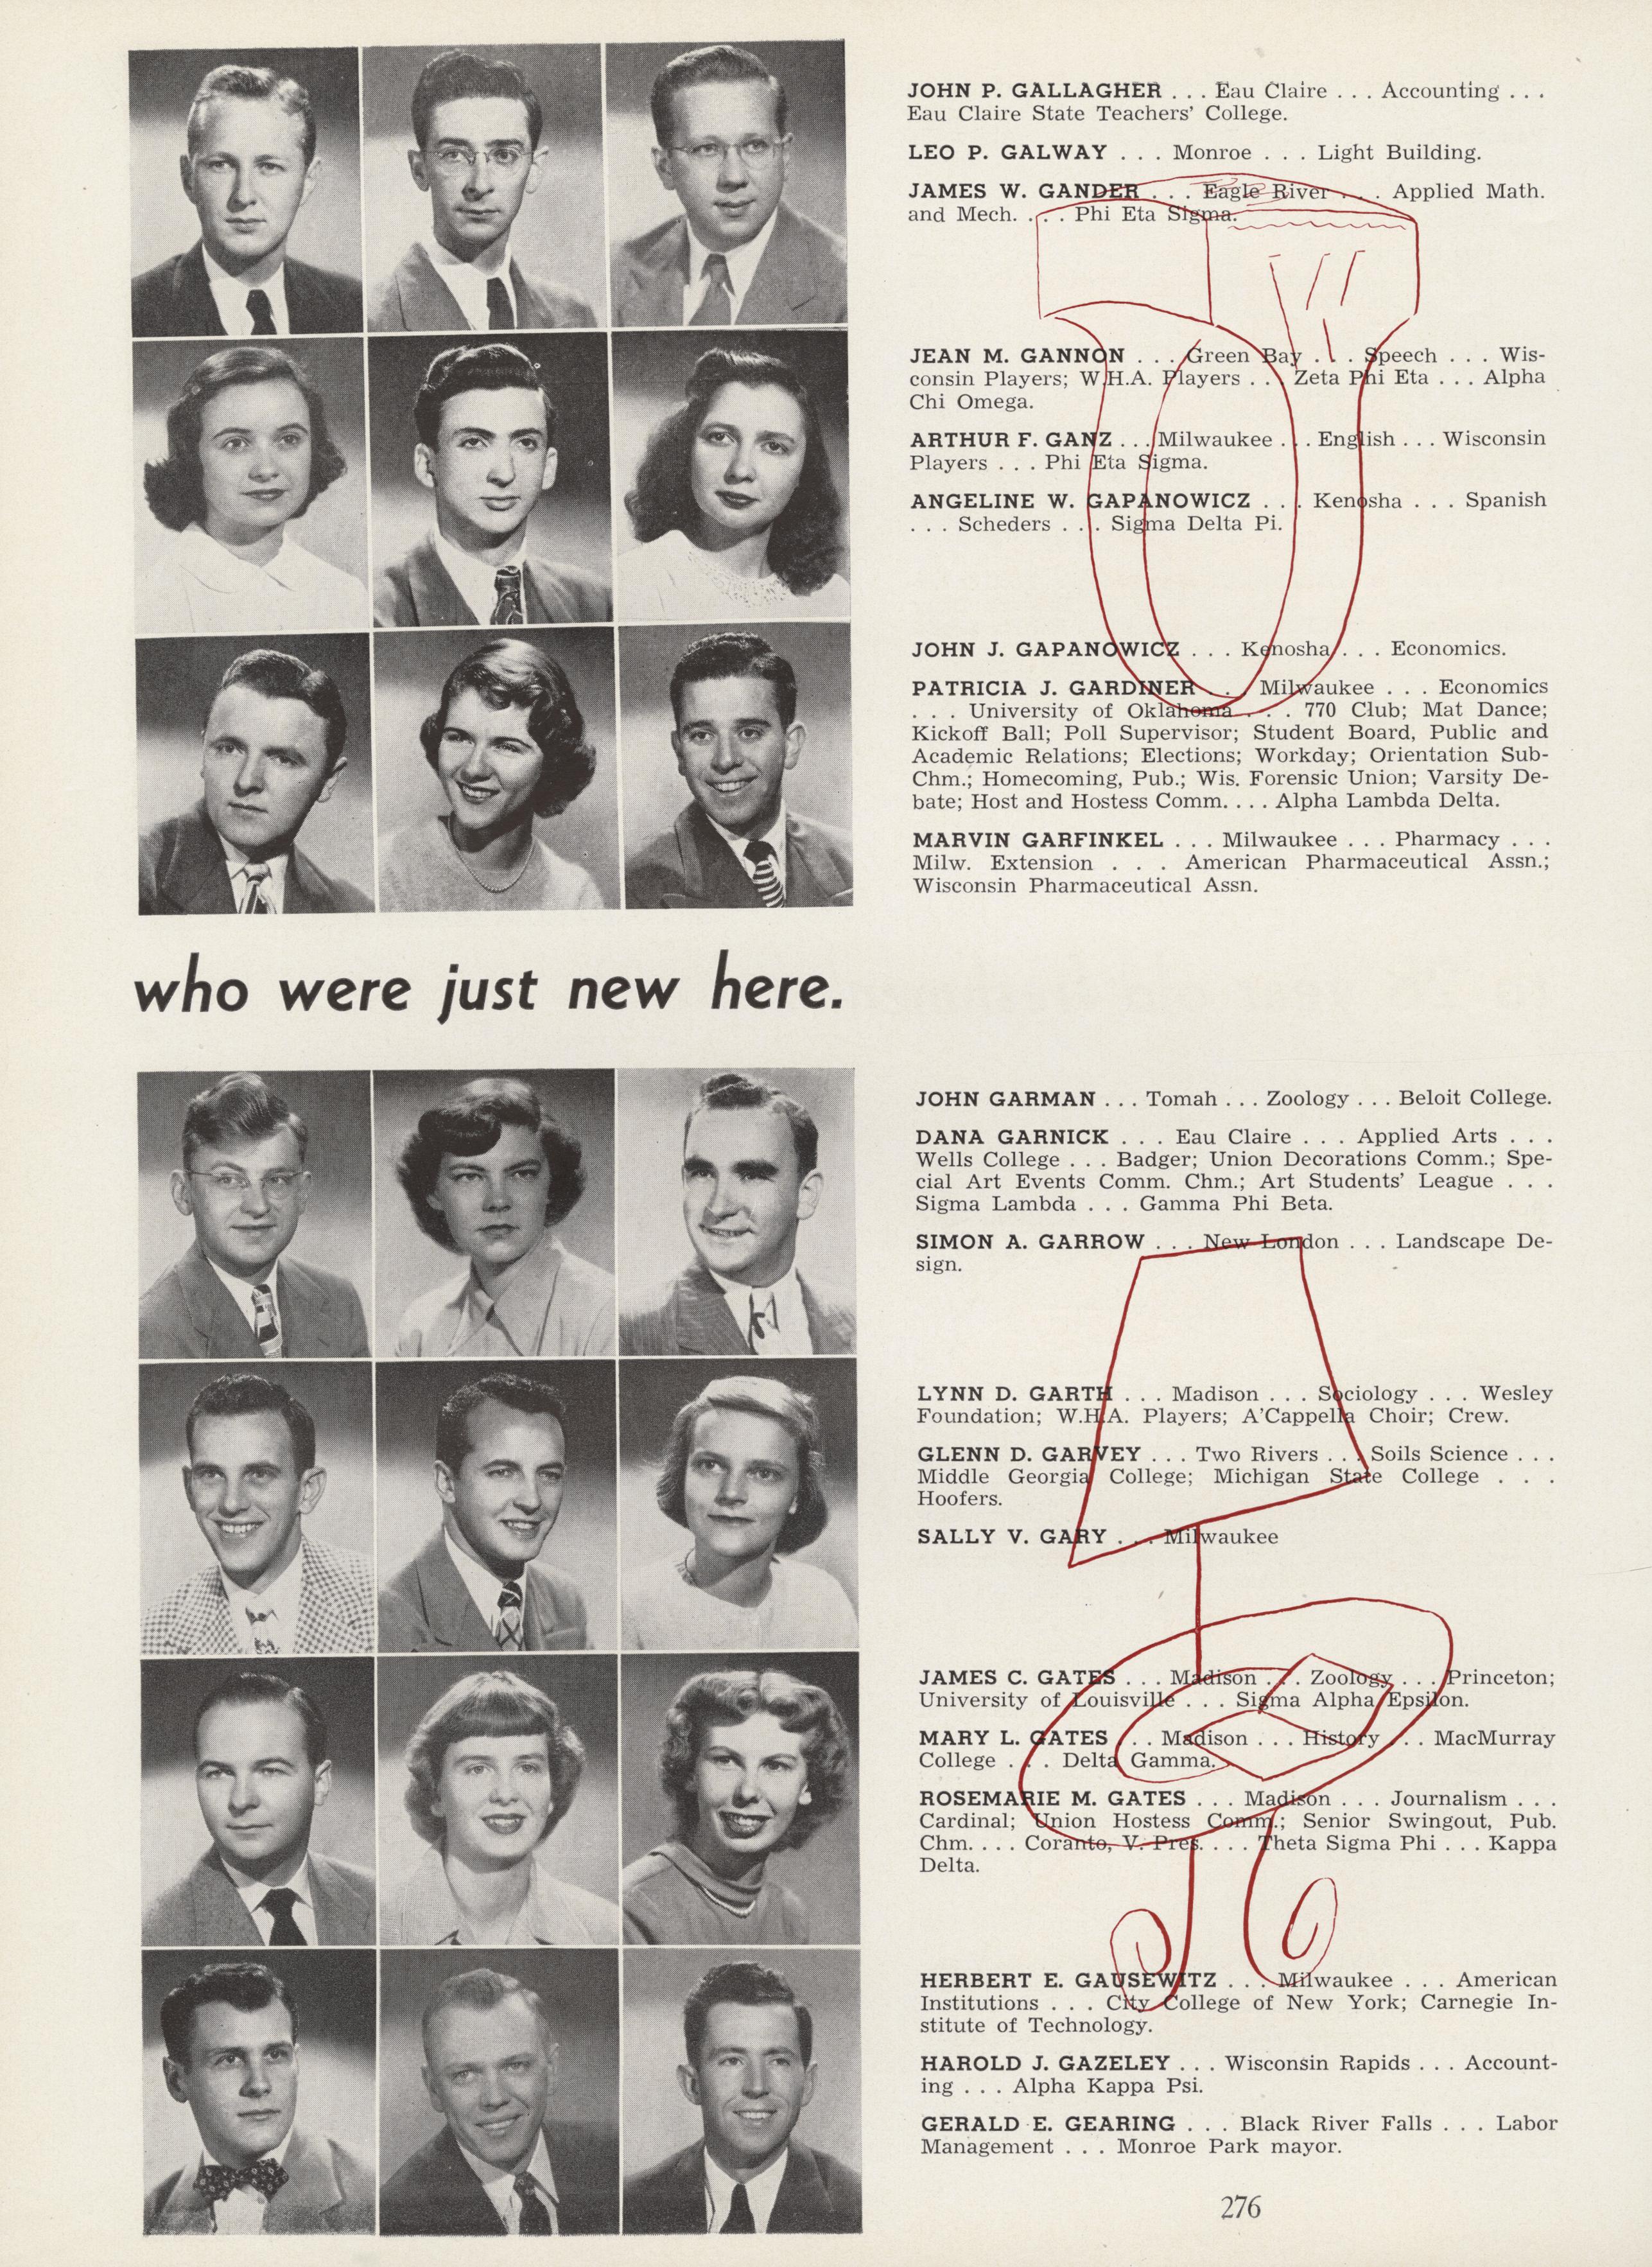 JOHN P. GALLAGHER . . . Eau Claire . . . Accounting . . .
Eau Claire State Teachers' College.
LEO P. GALWAY . . . Monroe . . . Light Building.
JAMES W. GANDER . . . Eagle River . . . Applied Math.
and Mech. . . . Phi Eta Sigma.
JEAN M. GANNON . . . Green Bay . . . Speech . . . Wis-
consin Players; W.H.A. Players . . . Zeta Phi Eta . . . Alpha
Chi Omega.
ARTHUR F. GANZ . . . Milwaukee . . . English . . . Wisconsin
Players . . . Phi Eta Sigma.
ANGELINE W. GAPANOWICZ . . . Kenosha . . . Spanish
. . . Scheders . . . Sigma Delta Pi.
JOHN J. GAPANOWICZ . . . Kenosha . . . Economics.
PATRICIA J. GARDINER . . . Milwaukee . . . Economics
. . . University of Oklahoma . . . 770 Club; Mat Dance;
Kickoff Ball; Poll Supervisor; Student Board, Public and
Academic Relations; Elections; Workday; Orientation Sub-
Chm.; Homecoming, Pub.; Wis. Forensic Union; Varsity De-
bate; Host and Hostess Comm. . . . Alpha Lambda Delta.
MARVIN GARFINKEL . . . Milwaukee . . . Pharmacy . . .
Milw. Extension . . . American Pharmaceutical Assn.;
Wisconsin Pharmaceutical Assn.
who were just new here.
JOHN GARMAN . . . Tomah . . . Zoology . . . Beloit College.
DANA GARNICK . . . Eau Claire . . . Applied Arts . . .
Wells College . . . Badger; Union Decorations Comm.; Spe-
cial Art Events Comm. Chm.; Art Students' League . . .
Sigma Lambda . . . Gamma Phi Beta.
SIMON A. GARROW . . . New London . . . Landscape De-
sign.
LYNN D. GARTH . . . Madison . . . Sociology . . . Wesley
Foundation; W.H.A. Players; A'Cappella Choir; Crew.
GLENN D. GARVEY . . . Two Rivers . . . Soils Science . . .
Middle Georgia College; Michigan State College . . .
Hoofers.
SALLY V. GARY . . . Milwaukee
JAMES C. GATES . . . Madison . . . Zoology . . . Princeton;
University of Louisville . . . Sigma Alpha Epsilon.
MARY L. GATES . . . Madison . . . History . . . MacMurray
College . . . Delta Gamma.
ROSEMARIE M. GATES . . . Madison . . . Journalism . . .
Cardinal; Union Hostess Comm.; Senior Swingout, Pub.
Chm. . . . Coranto, V. Pres. . . . Theta Sigma Phi . . . Kappa
Delta.
HERBERT E. GAUSEWITZ . . . Milwaukee . . . American
Institutions . . . City College of New York; Carnegie In-
stitute of Technology.
HAROLD J. GAZELEY . . . Wisconsin Rapids . . . Account-
ing . . . Alpha Kappa Psi.
GERALD E. GEARING . . . Black River Falls . . . Labor
Management . . . Monroe Park mayor.
276